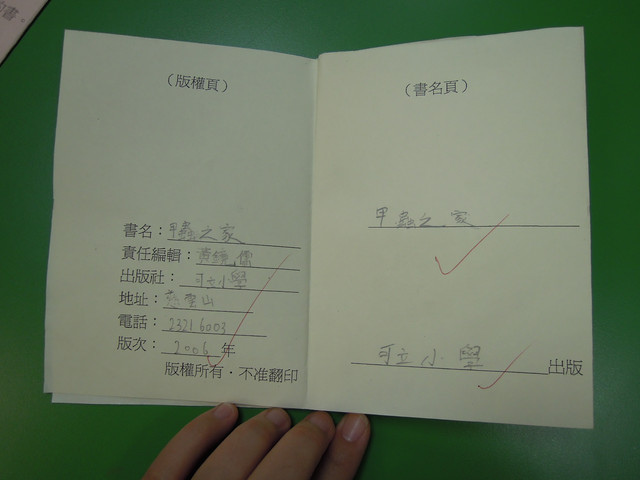 （版權頁）
書名：甲蟲之家
責任編輯：黃鏡儒
出版社：可立小學
地址：慈雲山
電話：23216003
版次：2006年
版權所有·不准翻印
（書名頁）
甲蟲之家
可立小學出版